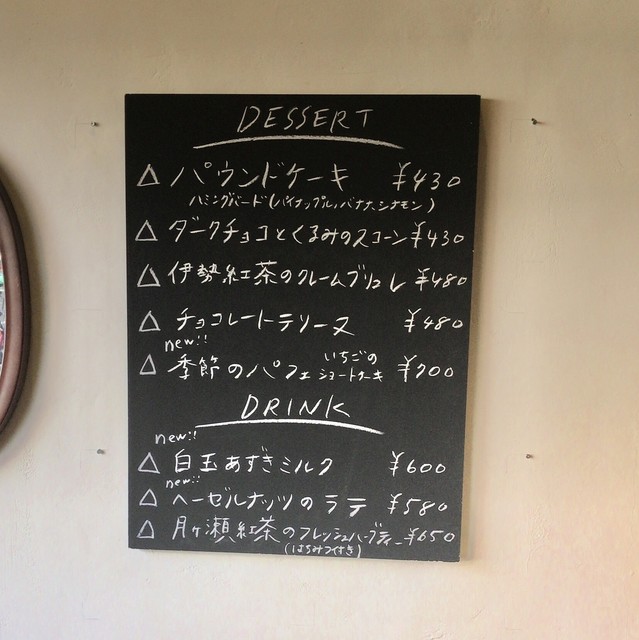 DESSERT
△ パウンドケーキ ¥430
ハミングバード(パイナップル,バナナ,シナモン)
△ ダークチョコとくるみのスコーン ¥430
△ 伊勢紅茶のクレームブリュレ ¥480
△ チョコレートテリーヌ ¥480
new!!
△ 季節のパフェ いちごのショートケーキ ¥700
DRINK
new!!
△ 白玉あずきミルク ¥600
new!!
△ ヘーゼルナッツのラテ ¥580
△ 月ヶ瀬紅茶のフレッシュハーブティー ¥650
(はちみつつき)